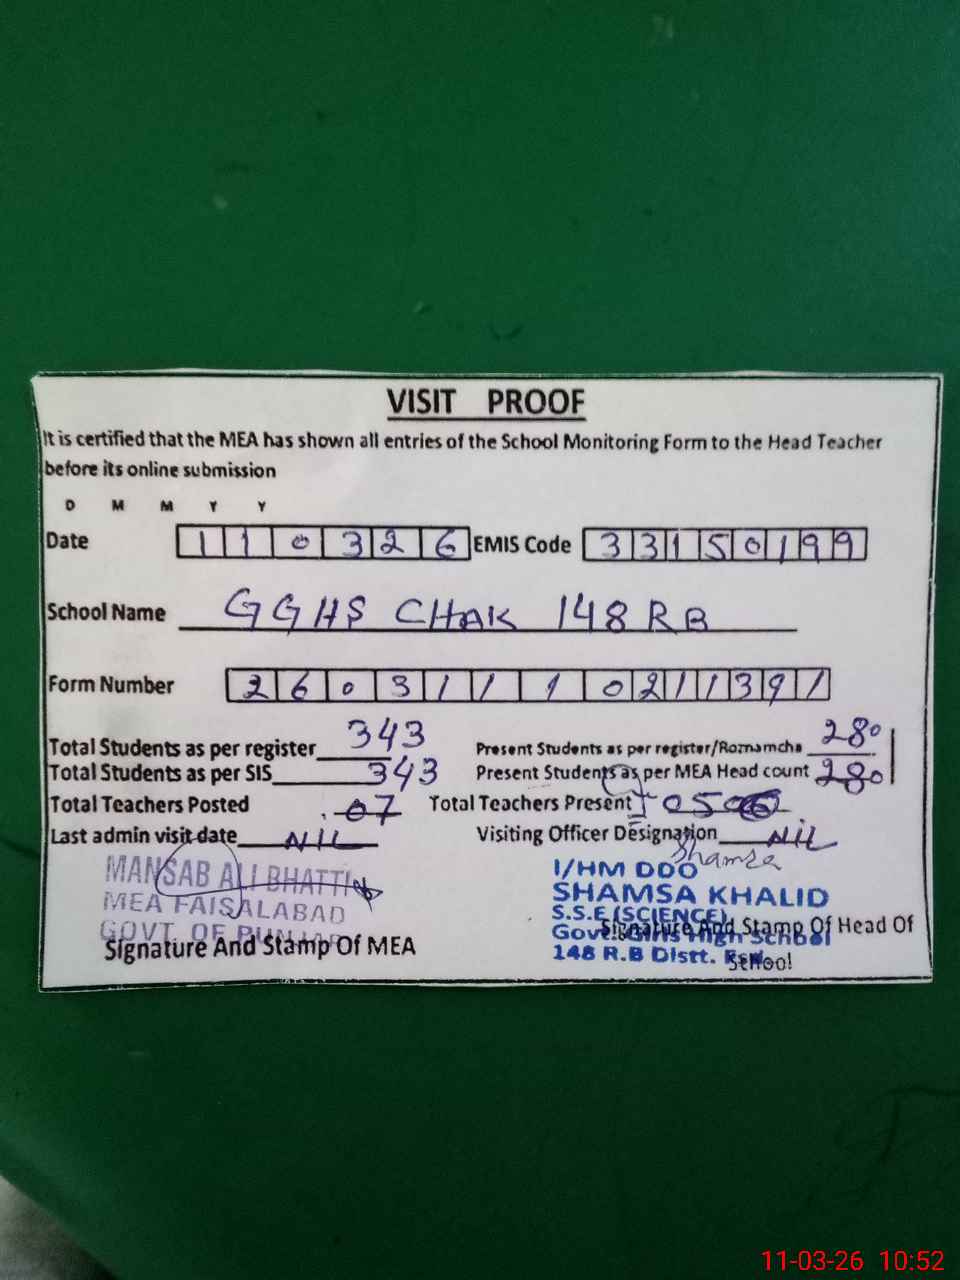 VISIT PROOF
It is certified that the MEA has shown all entries of the School Monitoring Form to the Head Teacher
before its online submission
D M M Y Y
Date 110326 EMIS Code 33150199
School Name GGHS CHAK 148 RB
Form Number 2603111021139/
Total Students as per register 343 Present Students as per register/Roznamcha 280
Total Students as per SIS 343 Present Students as per MEA Head count 280
Total Teachers Posted 07 Total Teachers Present 05
Last admin visit date NIL Visiting Officer Designation NIL
Shamsa
MANSAB ALI BHATTI
MEA FAISALABAD
GOVT. OF PUNJAB
Signature And Stamp Of MEA
I/HM DDO
SHAMSA KHALID
S.S.E (SCIENCE)
Govt. Girls High School
148 R.B Distt. Fsd.
Signature And Stamp Of Head Of
School
11-03-26 10:52